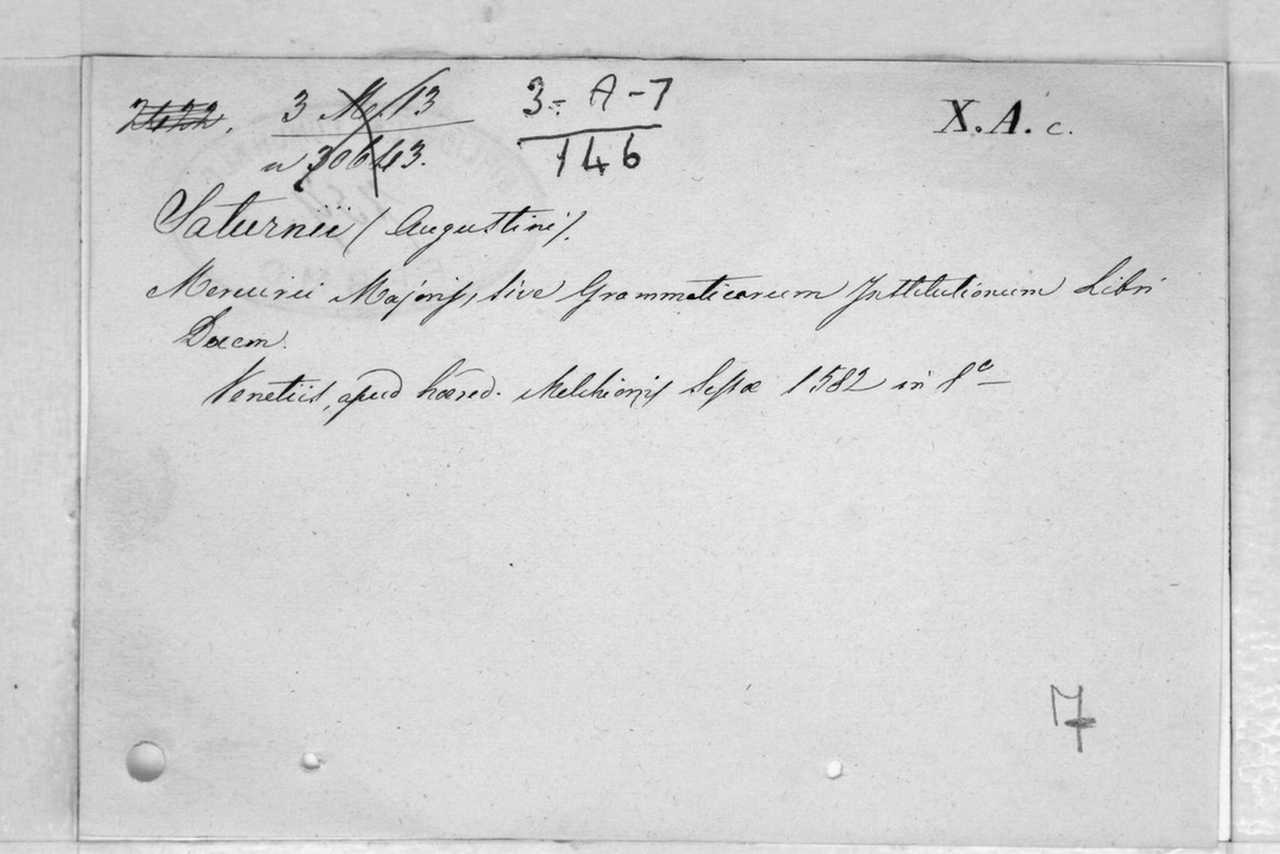 2422. 3 Me 13 3 = A - 7 X. A. c.
n 30643. 146
Saturnii (Augustini).
Mercurii Majoris, sive Grammaticarum Institutionum Libri
Decem.
Venetiis, apud hæred. Melchioris Sessæ 1582 in 8º